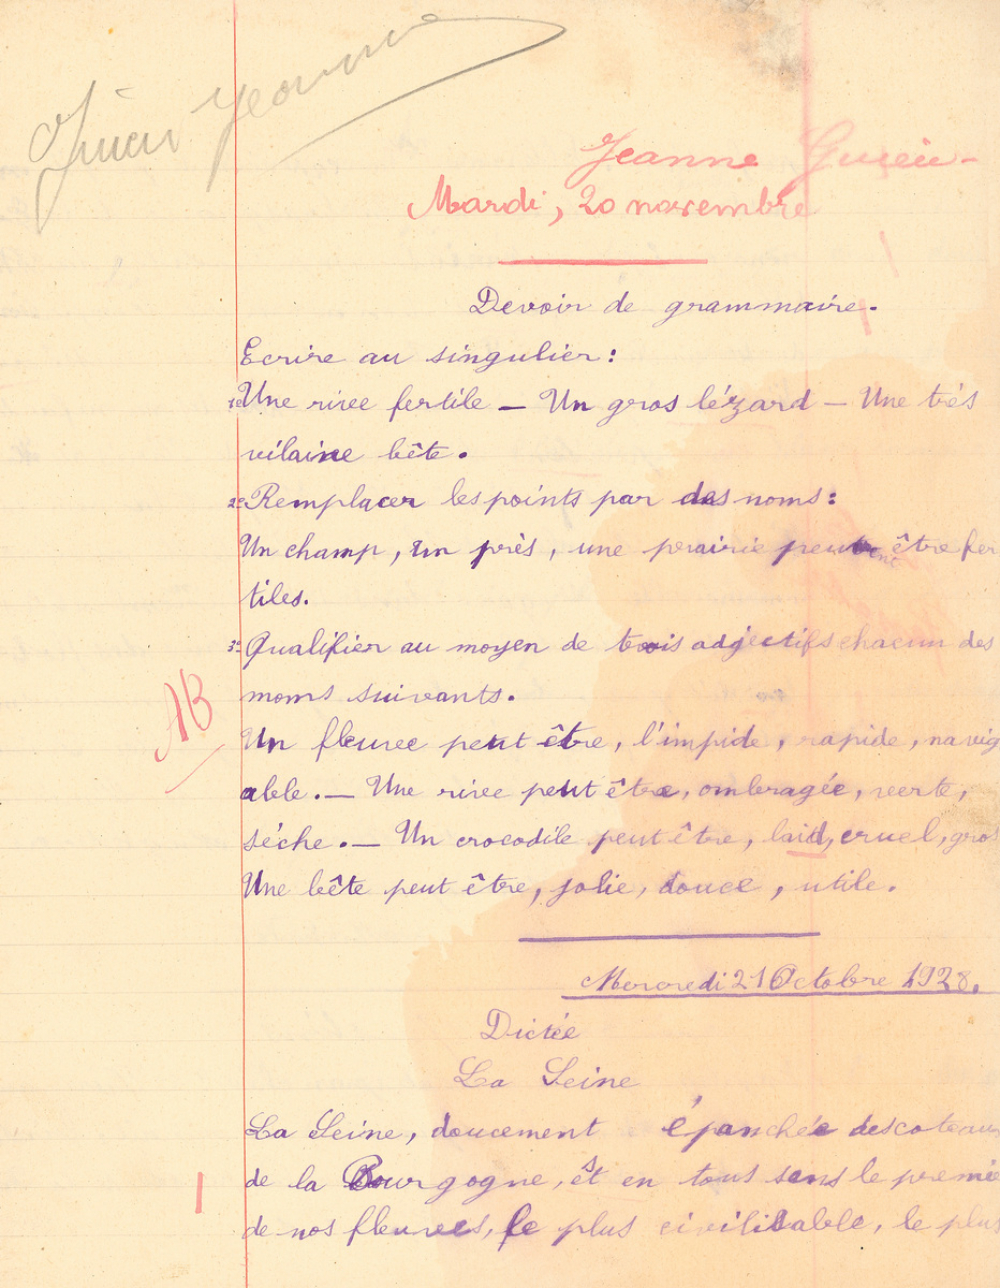 Jeanne
Jeanne
Mardi, 20 novembre
Devoir de grammaire.
Ecrire au singulier :
1º Une rive fertile — Un gros lézard — Une très
vilaine bête.
2º Remplacer les points par des noms :
Un champ, un près, une prairie peuvent être fer
tiles.
3º Qualifier au moyen de trois adjectifs chacun des
noms suivants.
AB
Un fleuve peut être, l'impide, rapide, navig
able. — Une rive peut être, ombragée, verte,
sèche. — Un crocodile peut être, laid, cruel, gros
Une bête peut être, jolie, douce, utile.
Mercredi 21 Octobre 1928.
Dictée
La Seine
La Seine, doucement épanchée des coteaux
de la Bourgogne, est en tous sens le premie
de nos fleuves, le plus civilisable, le plus